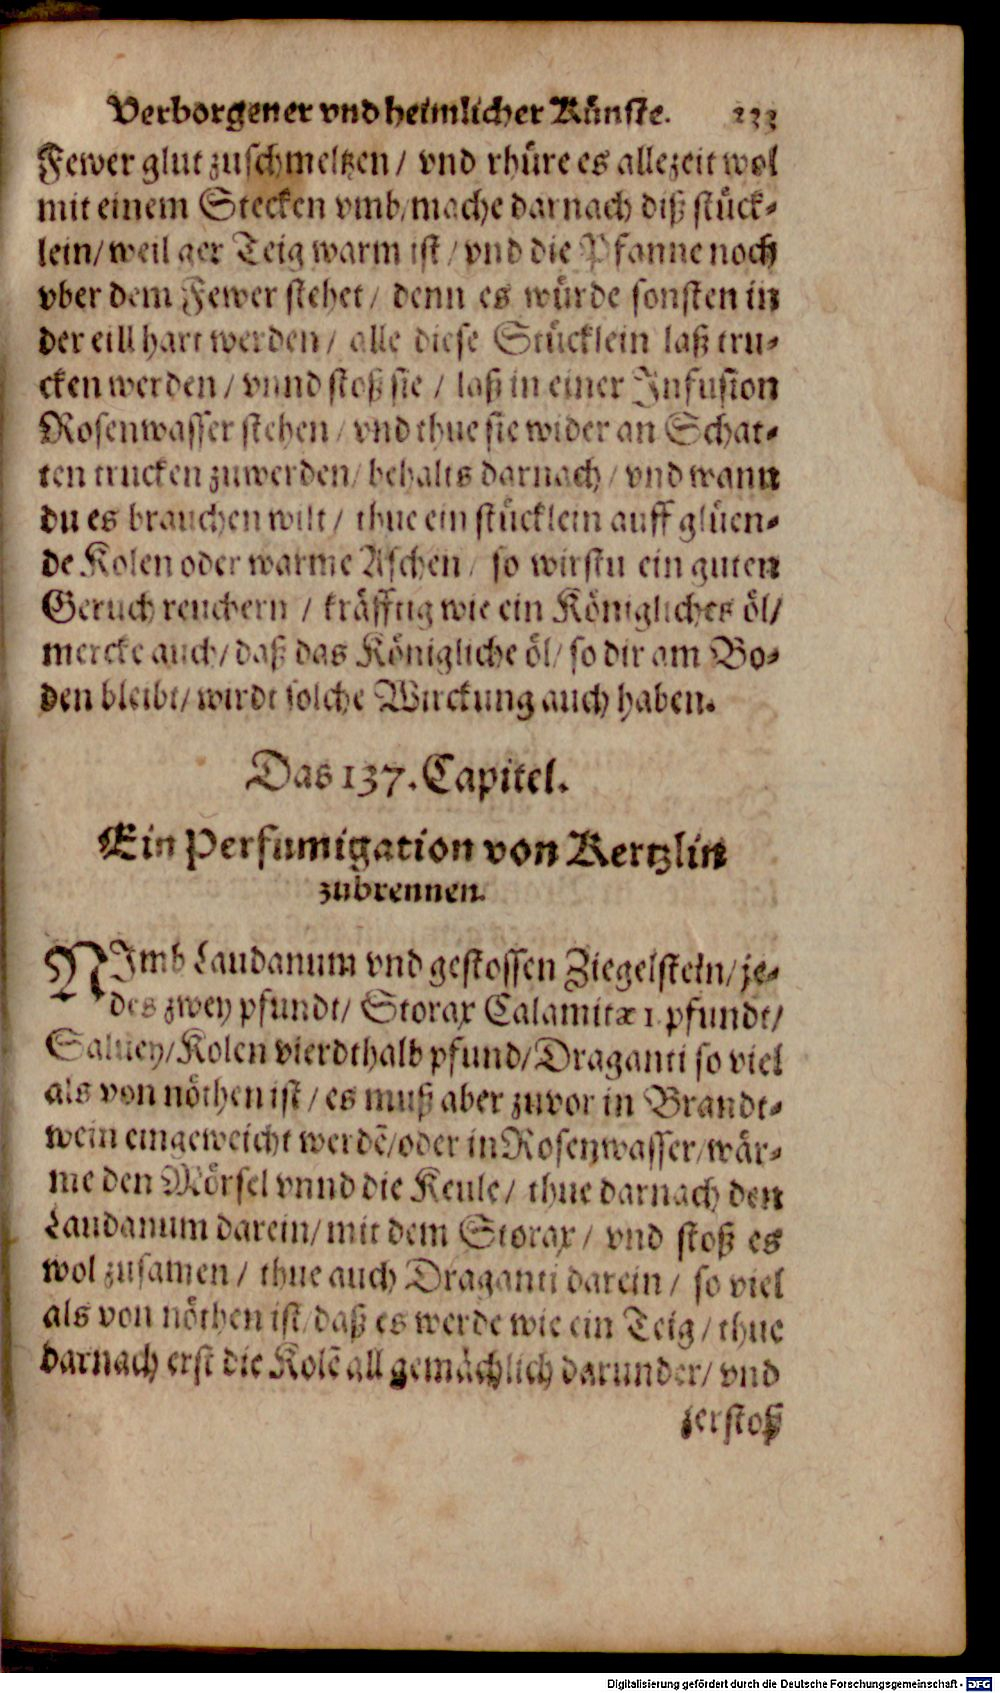 Verborgener vnd heimlicher Künste. 233
Fewer glut zuschmeltzen / vnd rhüre es allezeit wol
mit einem Stecken vmb/mache darnach diß stück-
lein/ weil aer Teig warm ist / vnd die Pfanne noch
vber dem Fewer stehet / denn es würde sonsten in
der eill hart werden / alle diese Stücklein laß tru-
cken werden / vnnd stoß sie / laß in einer Infusion
Rosenwasser stehen / vnd thue sie wider an Schat-
ten trucken zuwerden/ behalts darnach / vnd wann
du es brauchen wilt / thue ein stücklein auff glüen-
de Kolen oder warme Aschen / so wirstu ein guten
Geruch reuchern / kräfftig wie ein Königliches öl/
mercke auch/ daß das Königliche öl/ so dir am Bo-
den bleibt/ wirdt solche Wirckung auch haben.
Das 137. Capitel.
Ein Perfumigation von Kertzlin
zubrennen.
NImb Laudanum vnd gestossen Ziegelstein/ je-
des zwey pfundt/ Storax Calamitæ 1. pfundt/
Saluey/Kolen vierdthalb pfund/Draganti so viel
als von nöthen ist / es muß aber zuvor in Brandt-
wein eingeweicht werdẽ/oder in Rosenwasser/wär-
me den Mörsel vnnd die Keule / thue darnach den
Laudanum darein/ mit dem Storax / vnd stoß es
wol zusamen / thue auch Draganti darein / so viel
als von nöthen ist/ daß es werde wie ein Teig / thue
darnach erst die Kolẽ all gemächlich darunder/ vnd
zerstoß
Digitalisierung gefördert durch die Deutsche Forschungsgemeinschaft - DFG